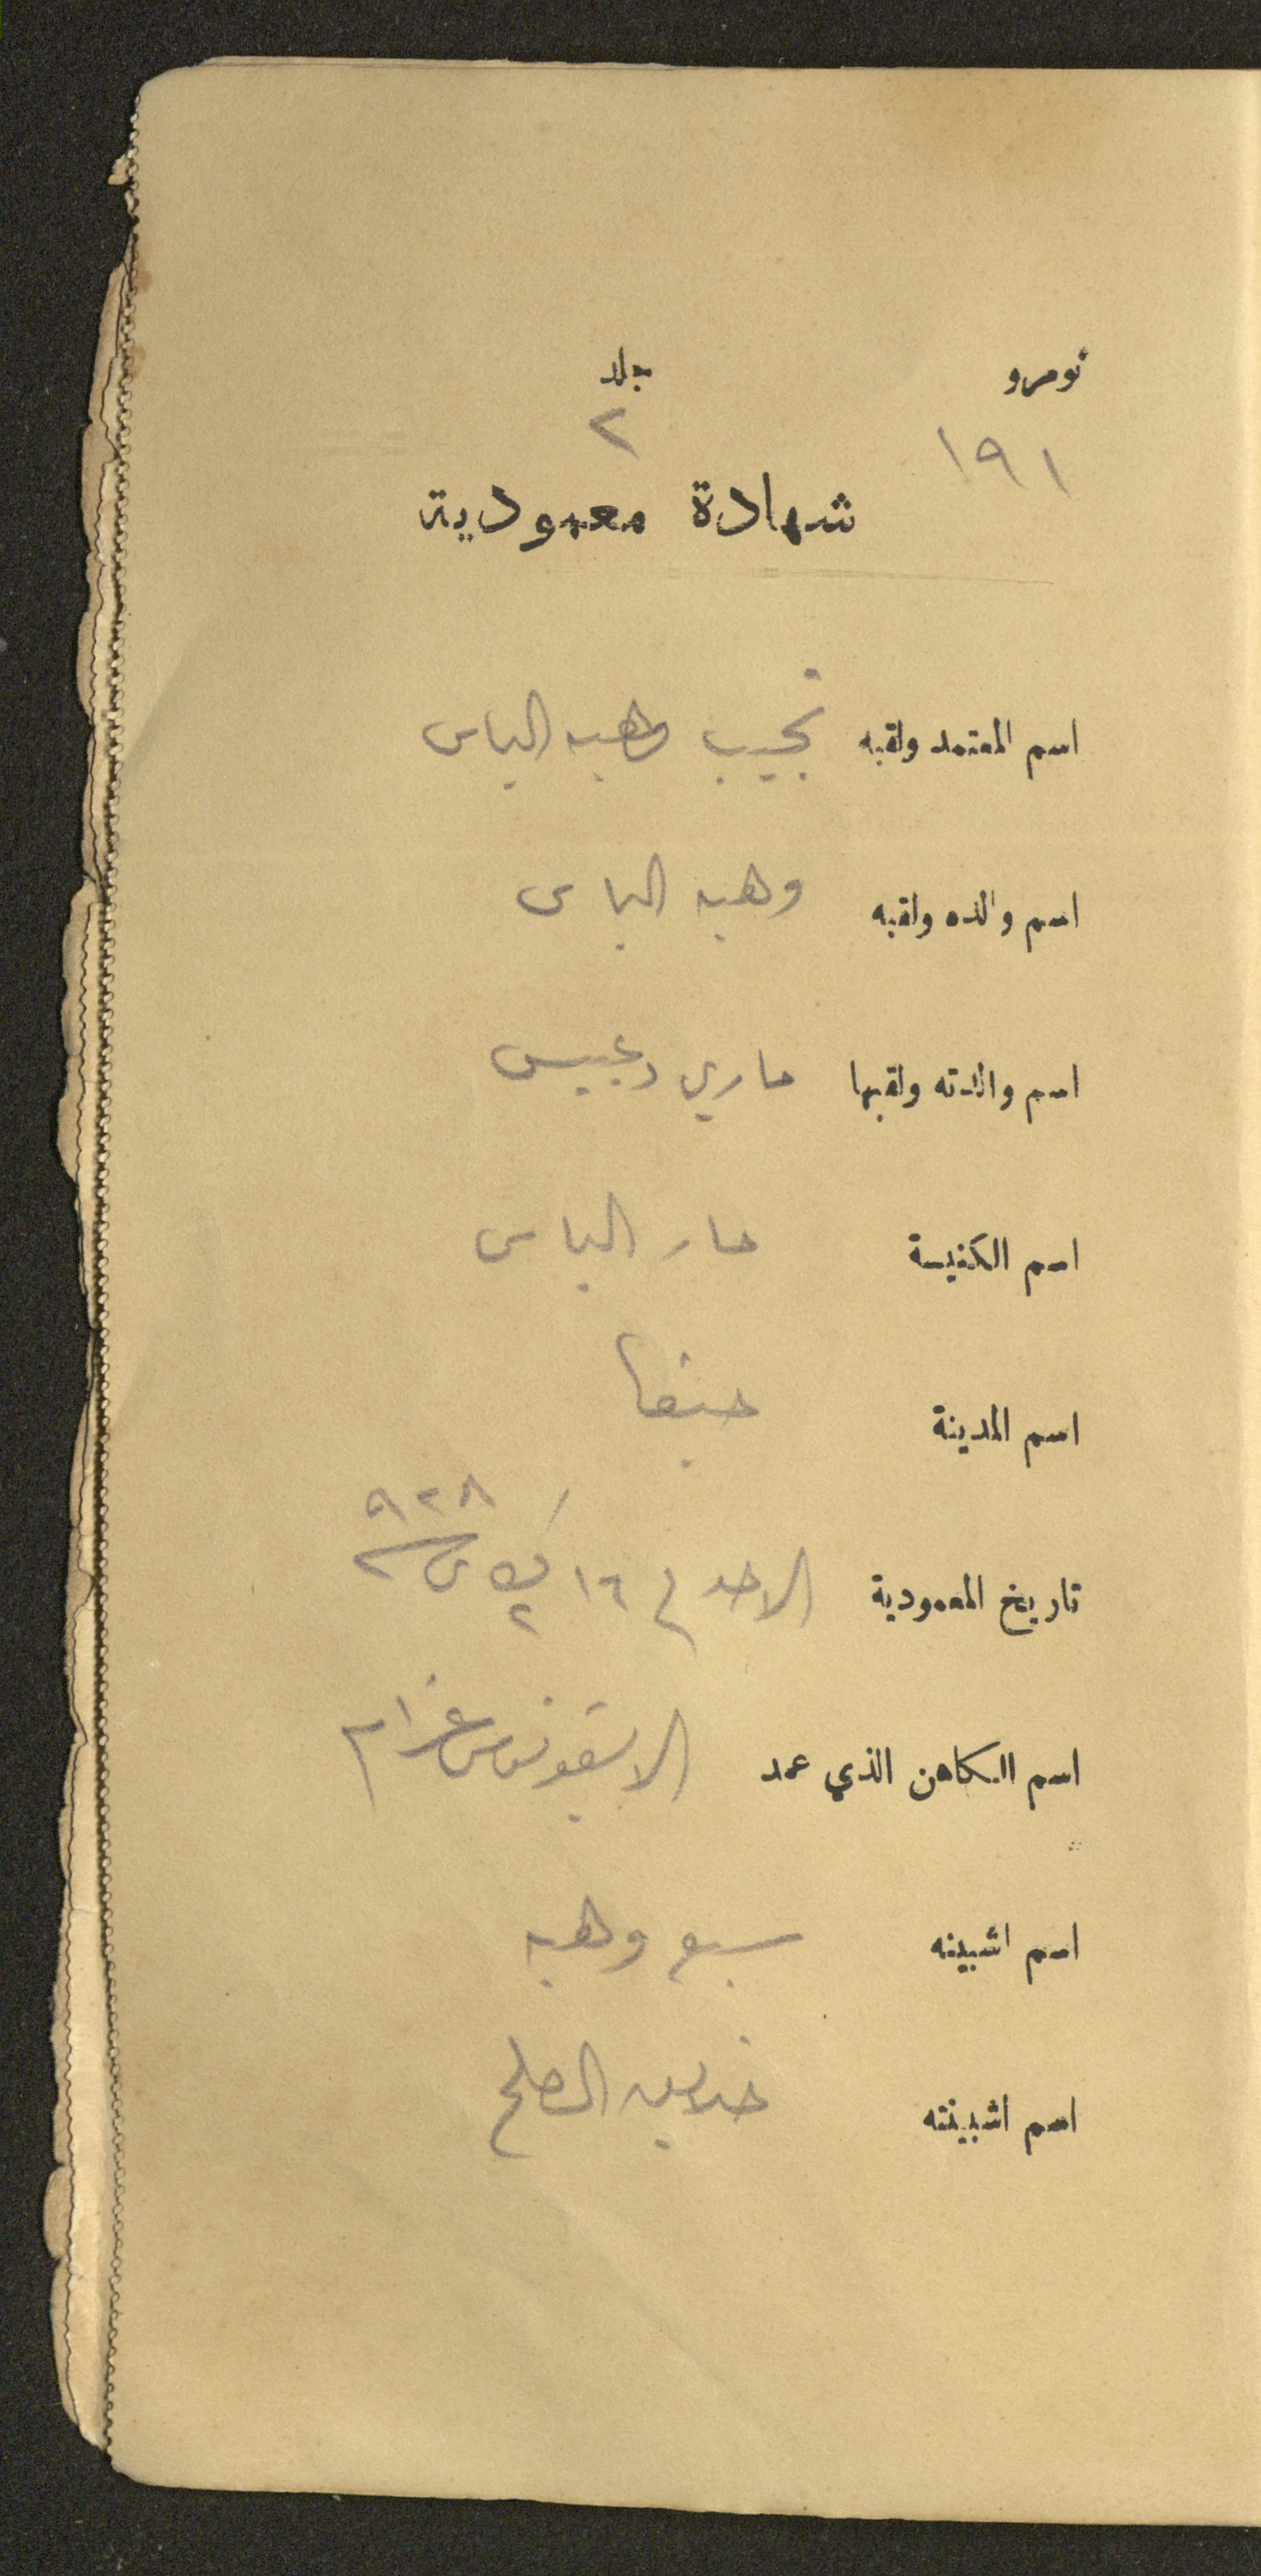 نومرو جلد
١٩١ ٢
شهادة معمودية
اسم المعتمد ولقبه نجيب وهبه الياس
اسم والده ولقبه وهبه الياس
اسم والدته ولقبها ماري دعيبس
اسم الكنيسة مار الياس
اسم المدينة حيفا
تاريخ المعمودية الاحد في ١٦ ك ٢ سنة ٩٣٨
اسم الكاهن الذي عمد الايقونوس عزام
اسم اشبينه سبع وهبه
اسم اشبينته